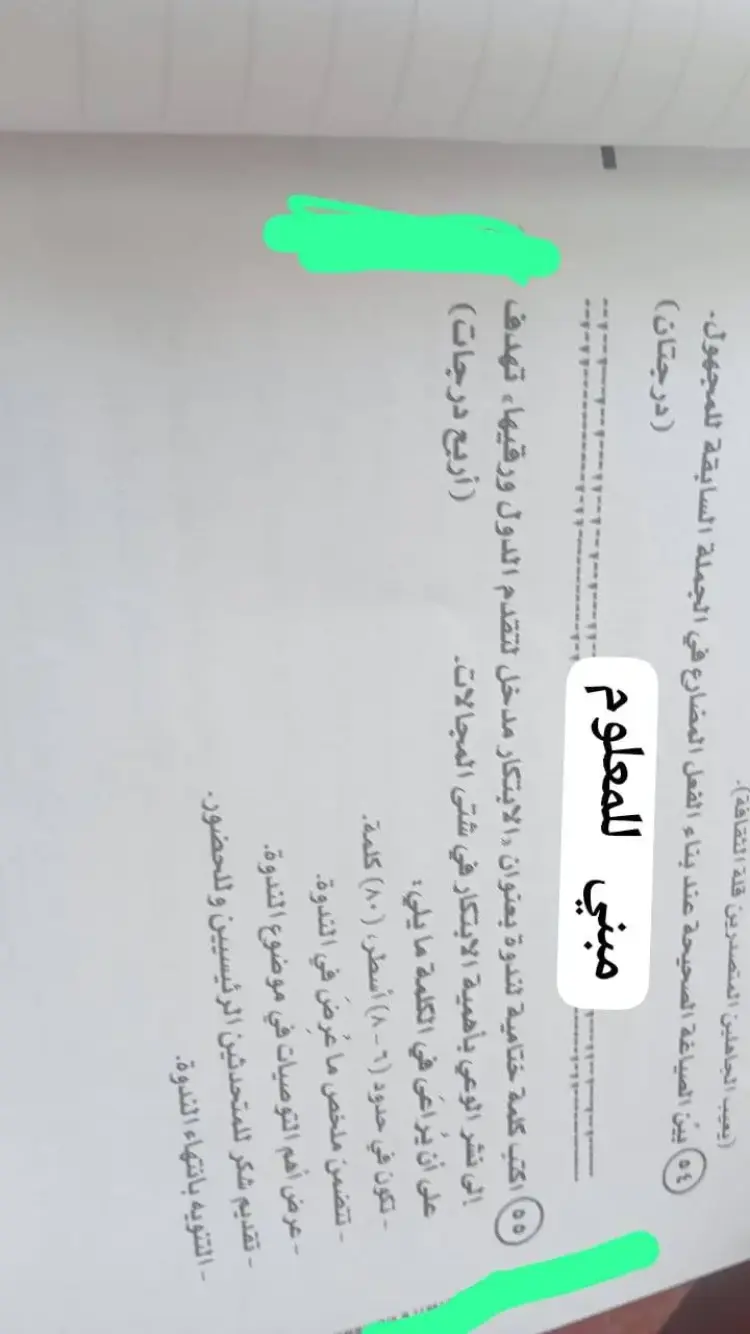 (يعيب الجاهلين المتصدرين قلة الثقافة).
٥٤ بيّن الصياغة الصحيحة عند بناء الفعل المضارع في الجملة السابقة للمجهول.
(درجتان)
مبني للمعلوم
٥٥ اكتب كلمة ختامية لندوة بعنوان «الابتكار مدخل لتقدم الدول ورقيها» تهدف
إلى نشر الوعي بأهمية الابتكار في شتى المجالات. (أربع درجات)
على أن يُراعَى في الكلمة ما يلي:
- تكون في حدود (٦ - ٨) أسطر، (٨٠) كلمة.
- تتضمن ملخص ما عُرضَ في الندوة.
- عرض أهم التوصيات في موضوع الندوة.
- تقديم شكر للمتحدثين الرئيسيين وللحضور.
- التنويه بانتهاء الندوة.